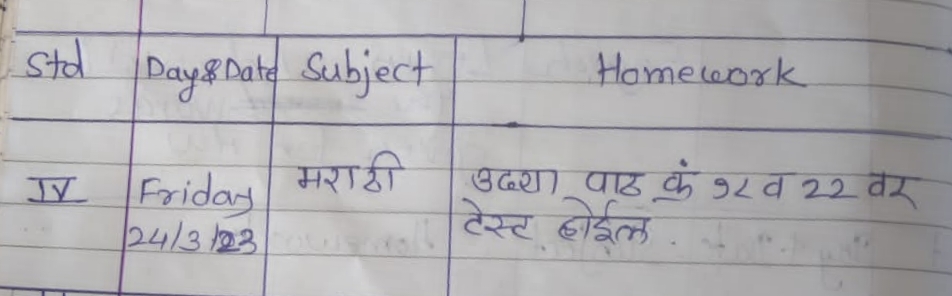 Std Day&Date Subject Homework
IV Friday मराठी उदया पाठ कं १८ व २२ वर
24/3/23 टेस्ट होईल.